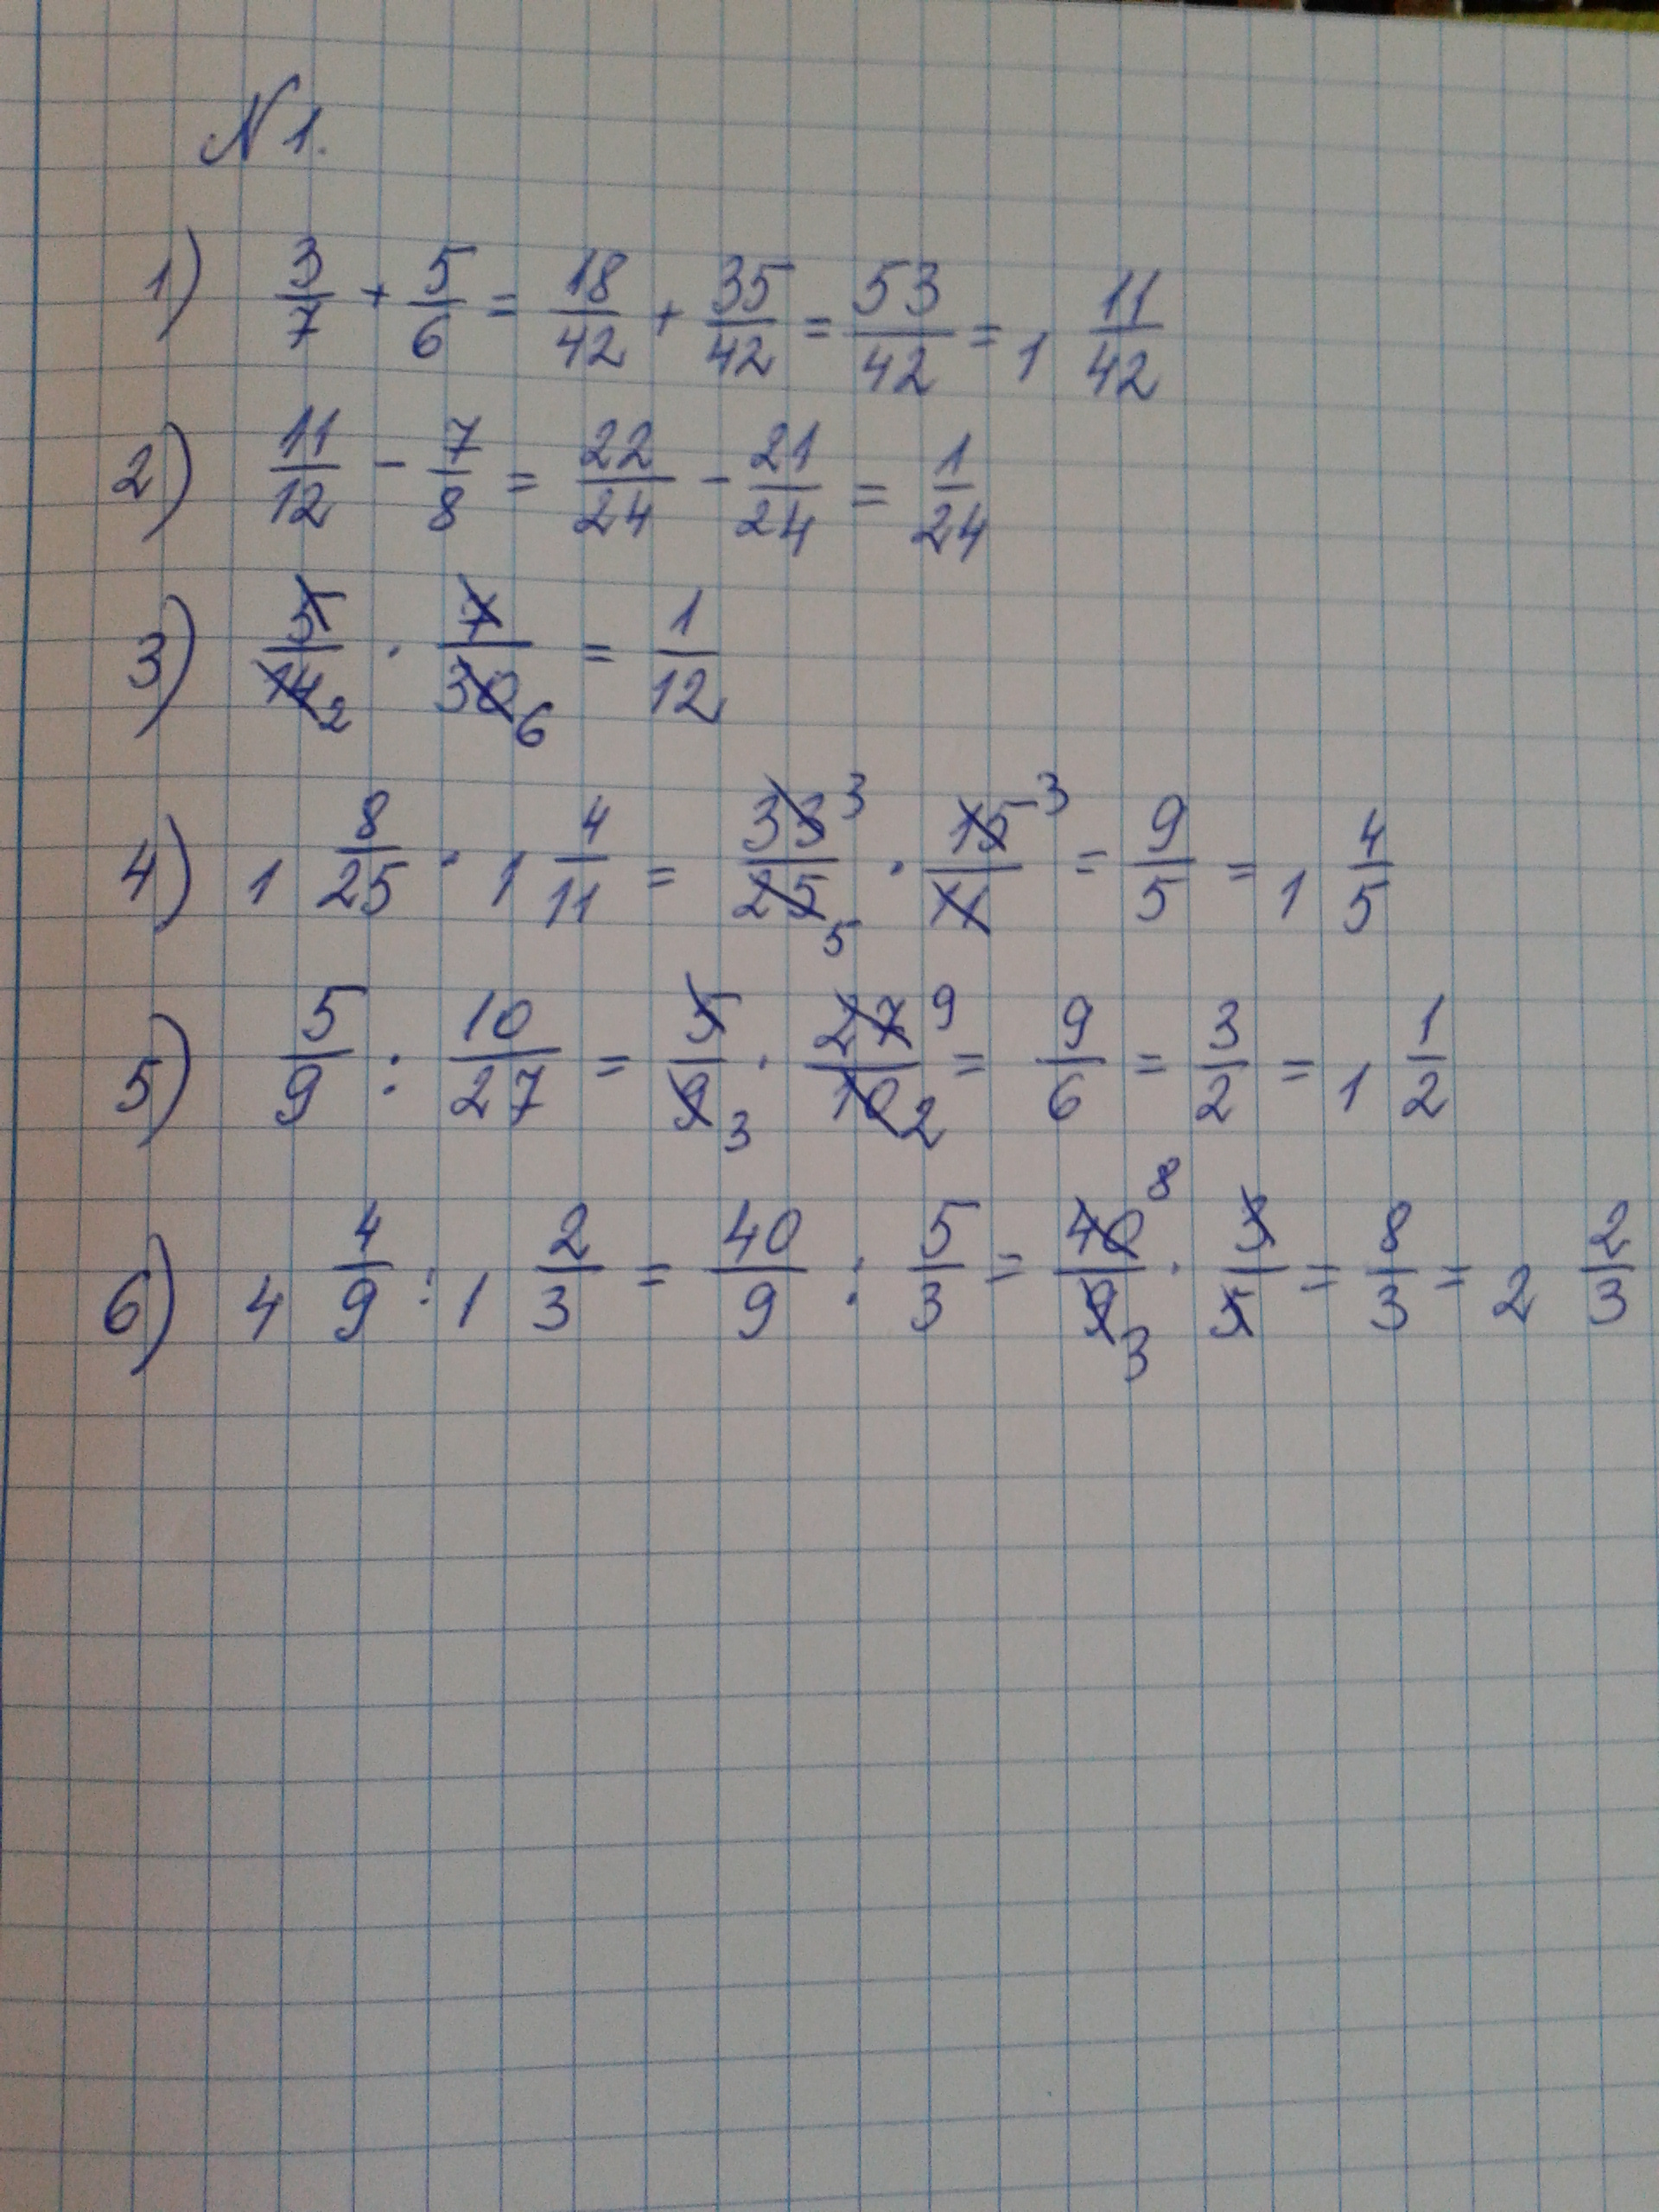 N1.
1) 3/7 + 5/6 = 18/42 + 35/42 = 53/42 = 1 11/42
2) 11/12 - 7/8 = 22/24 - 21/24 = 1/24
3) 5/14 2 · 7/30 6 = 1/12
4) 1 8/25 · 1 4/11 = 33 3/25 5 · 15 3/11 = 9/5 = 1 4/5
5) 5/9 : 10/27 = 5/9 3 · 27 9/10 2 = 9/6 = 3/2 = 1 1/2
6) 4 4/9 : 1 2/3 = 40/9 : 5/3 = 40 8/9 3 · 3/5 = 8/3 = 2 2/3